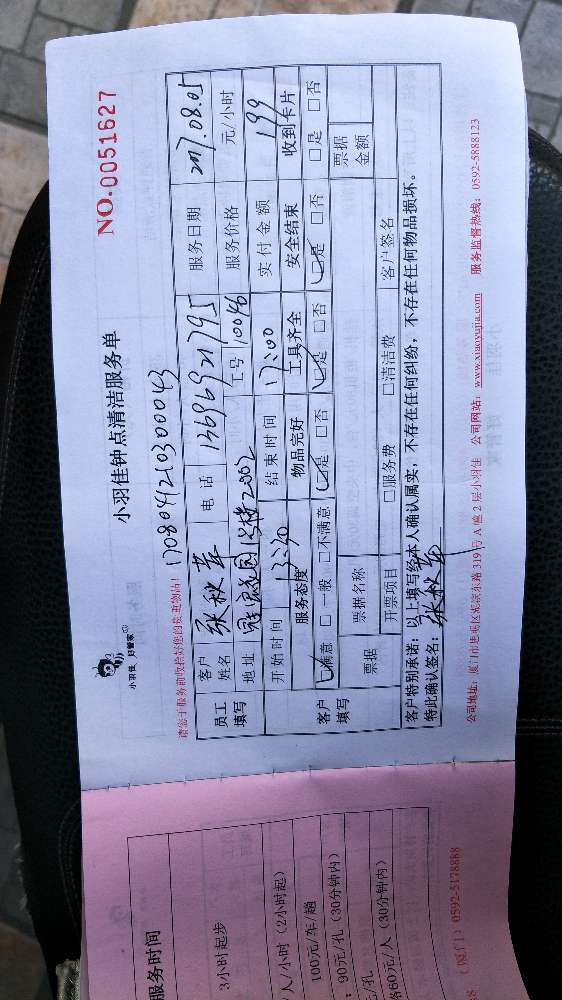 小羽佳 好管家
小羽佳钟点清洁服务单
NO.0051627
请您于服务前收拾好您的贵重物品!
1708041210300043
员工填写
客户姓名 张秋華 电话 13696921795 服务日期 2017.08.05
地址 2002 工号 10046 服务价格 元/小时
开始时间 13:30 结束时间 17:00 实付金额 199
客户填写
服务态度 物品完好 工具齐全 安全结束 收到卡片
满意 □一般 □不满意 是 □否 是 □否 是 □否 □是 □否
票据 票据名称 票据金额
开票项目 □服务费 □清洁费 客户签名
客户特别承诺:以上填写经本人确认属实,不存在任何纠纷,不存在任何物品损坏。
特此确认签名:张秋華
公司地址:厦门市思明区莲前东路319号A幢2层小羽佳 公司网站:www.xiaoyujia.com 服务监督热线:0592-5888123
服务时间
3小时起步
/人/小时(2小时起)
100元/车/趟
90元/孔(30分钟内)
元/孔
60元/人(30分钟内)
(厦门)0592-5178888